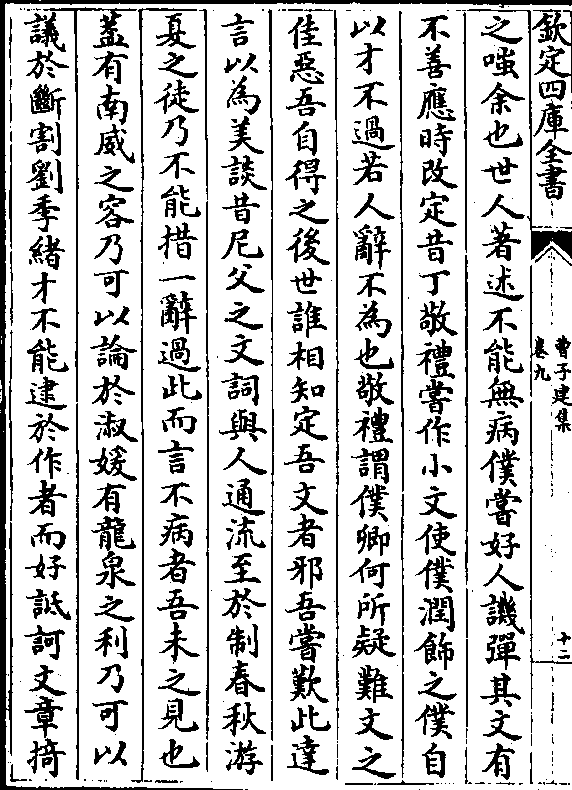 欽定四庫全書
曹子建集
卷九
十二
之嗤余也世人著述不能無病僕嘗好人譏彈其文有
不善應時改定昔丁敬禮嘗作小文使僕潤飾之僕自
以才不過若人辭不為也敬禮謂僕卿何所疑難文之
佳惡吾自得之後世誰相知定吾文者邪吾嘗歎此達
言以為美談昔尼父之文詞與人通流至於制春秋游
夏之徒乃不能措一辭過此而言不病者吾未之見也
蓋有南威之容乃可以論於淑媛有龍泉之利乃可以
議於斷割劉季緒才不能逮於作者而好詆訶文章掎